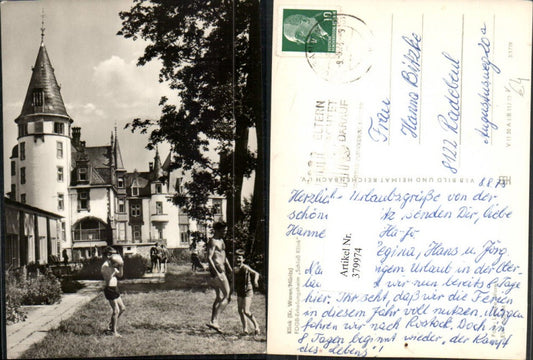 Klink (Kr. Waren/Müritz)
FDGB-Erholungsheim "Schloß Klink"
10
ELTERN
Frau
Hanna Bätzke
8122 Radebeul
Augustusweg
VEB BILD UND HEIMAT REICHENBACH i. V.
Artikel Nr.
379974
8.8.73
Herzlich Urlaubsgrüße von der
schön senden Dir, liebe
Hanne
Regina, Hans u. Jörg
Urlaub in der
wir nun bereits 8 Tage
hier. Ihr seht, daß wir die Ferien
in diesem Jahr voll nutzen. Morgen
fahren wir nach Rostock. Doch in
8 Tagen beginnt wieder "der Kampf
des Lebens"!